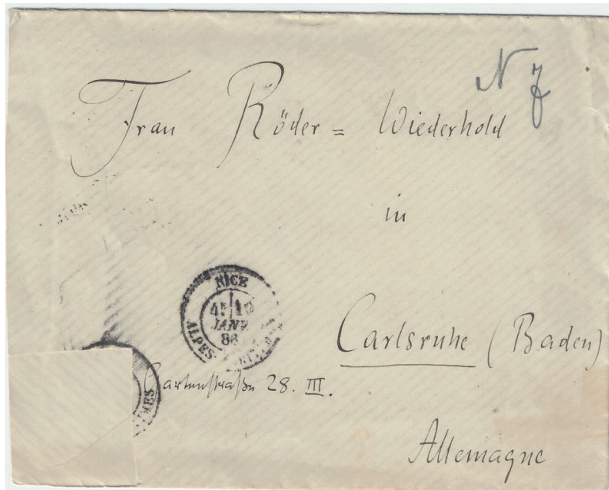 N
Frau Röder = Wiederhold
in
NICE
JANV
86
ALPES-MARITIMES
Carlsruhe (Baden)
Gartenstraße 28. III.
Allemagne